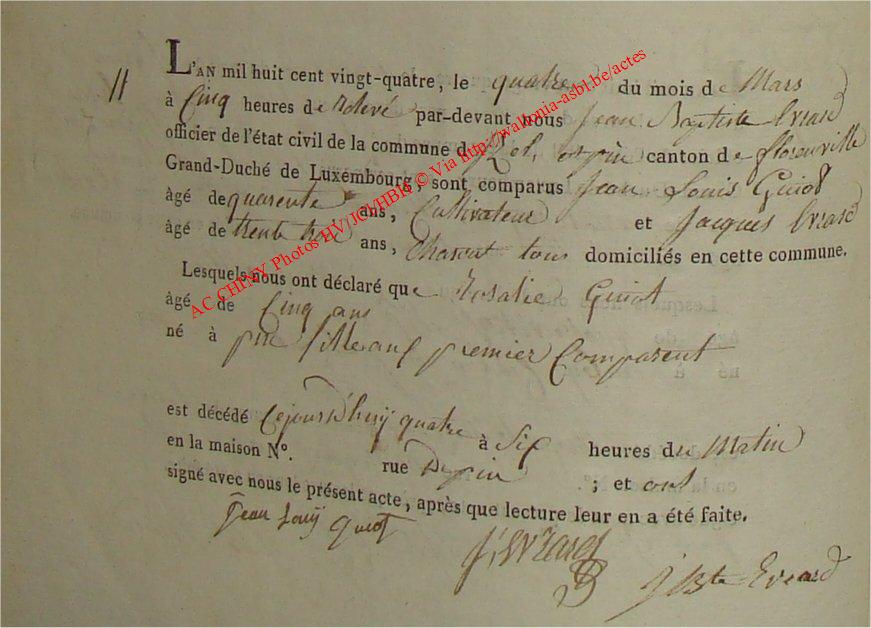 11
L'AN mil huit cent vingt-quatre, le quatre du mois de Mars
à Cinq heures de relevé par-devant nous Jean Baptiste Evrard
officier de l'état civil de la commune de canton de florenville
Grand-Duché de Luxembourg, sont comparus Jean Louis Guiot
âgé de quarente ans, Cultivateur et Jacques Evrard
âgé de trente trois ans, tous domiciliés en cette commune.
Lesquels nous ont déclaré que Rosalie Guiot
âgé de Cinq ans
né à pin fille au premier Comparent
est décédé Cejourd'huij quatre à Six heures du Matin
en la maison N°. rue De pin ; et ont
signé avec nous le présent acte, après que lecture leur en a été faite.
Jean Louij Guiot
J. Evrard
J Bte Evrard
AC CHINY Photos HV/JCV/HBH © Via http://wallonia-asbl.be/actes